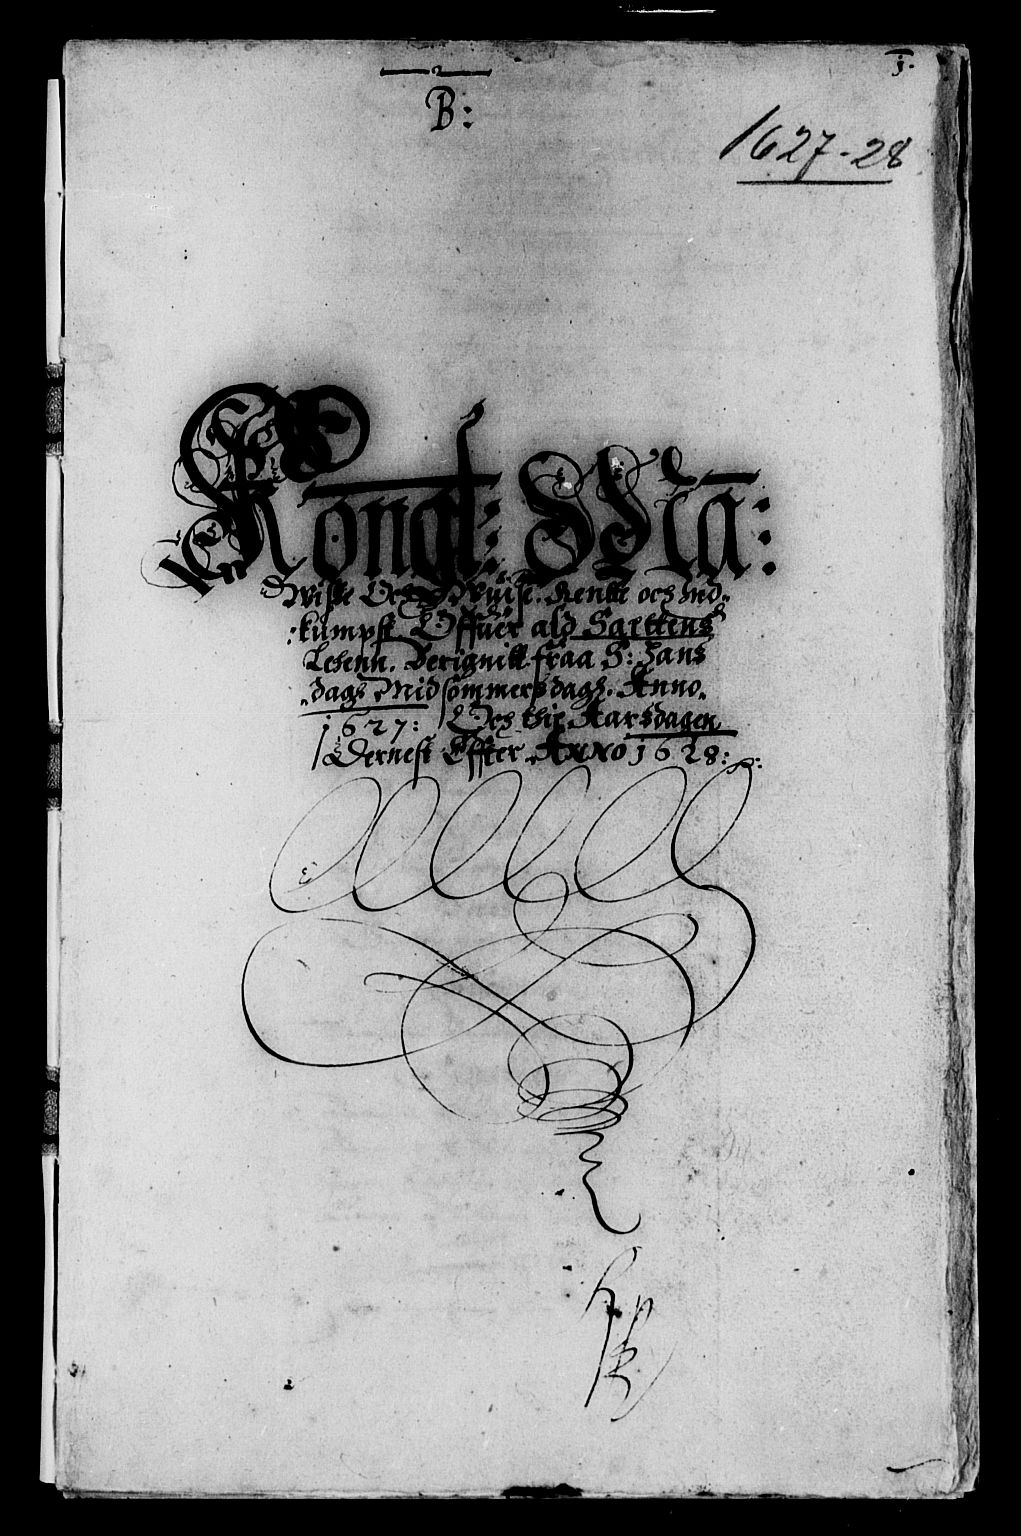 1.
2
B:
1627-28
Kongl: Ma:
Wisse Och Wuise. Rentte och Ind„
:kumpst Offuer ald Sgeltens
Lehenn. Berignitt fraa S: Hans
„dags Midsommersdagh. Anno„
1627: Och thil Aarsdagen
Dernest Effter Anno 1628: